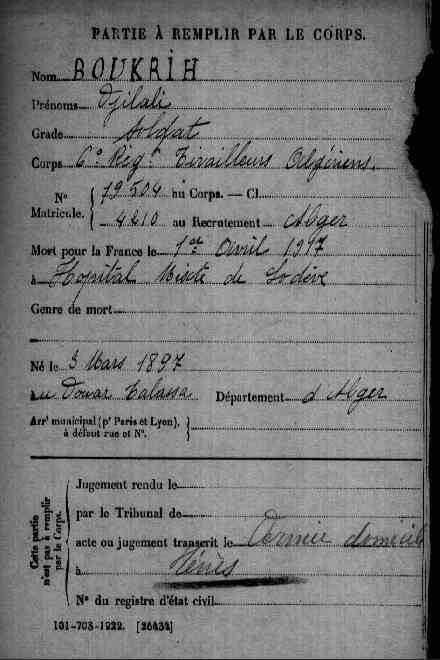 PARTIE À REMPLIR PAR LE CORPS.
Nom BOUKRIH
Prénoms Djilali
Grade Soldat
Corps 6e Régt Tirailleurs Algériens.
N° Matricule. { 19504 au Corps. — Cl.
4210 au Recrutement Alger
Mort pour la France le 1er Avril 1917
à Hopital Mixte de Lodève
Genre de mort
Né le 3 Mars 1897
au Douar Talassa Département d'Alger
Arrt municipal (pr Paris et Lyon), }
à défaut rue et N°.
Cette partie n'est pas à remplir par le Corps.
Jugement rendu le
par le Tribunal de
acte ou jugement transcrit le Dernier domicile
à Ténès
N° du registre d'état civil
101-708-1922. [26434]